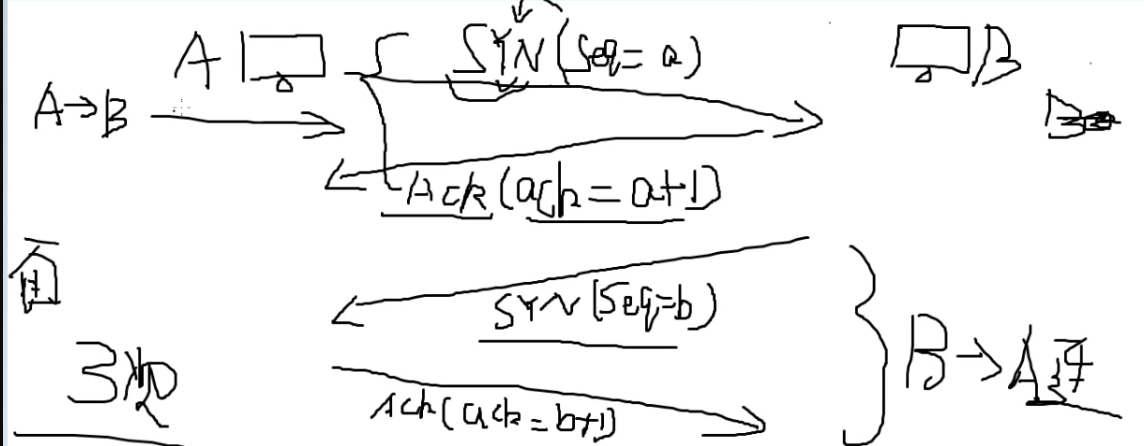 A SYN (Seq= a) B
A→B
Ack (ack = a+1)
SYN (Seq=b)
B→A
Ack (ack = b+1)